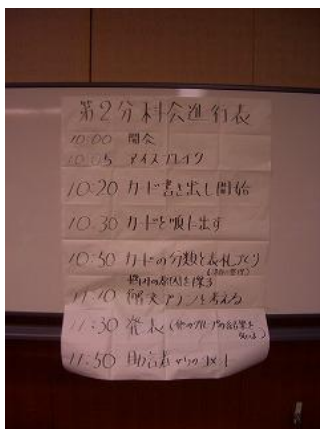 第2分科会進行表
10:00 開会
10:05 アイスブレイク
10:20 カード書き出し開始
10:30 カードを順に出す
10:50 カードの分類と表札づくり
11:10 解決プランを考える
11:30 発表
11:50 助言者からのコメント